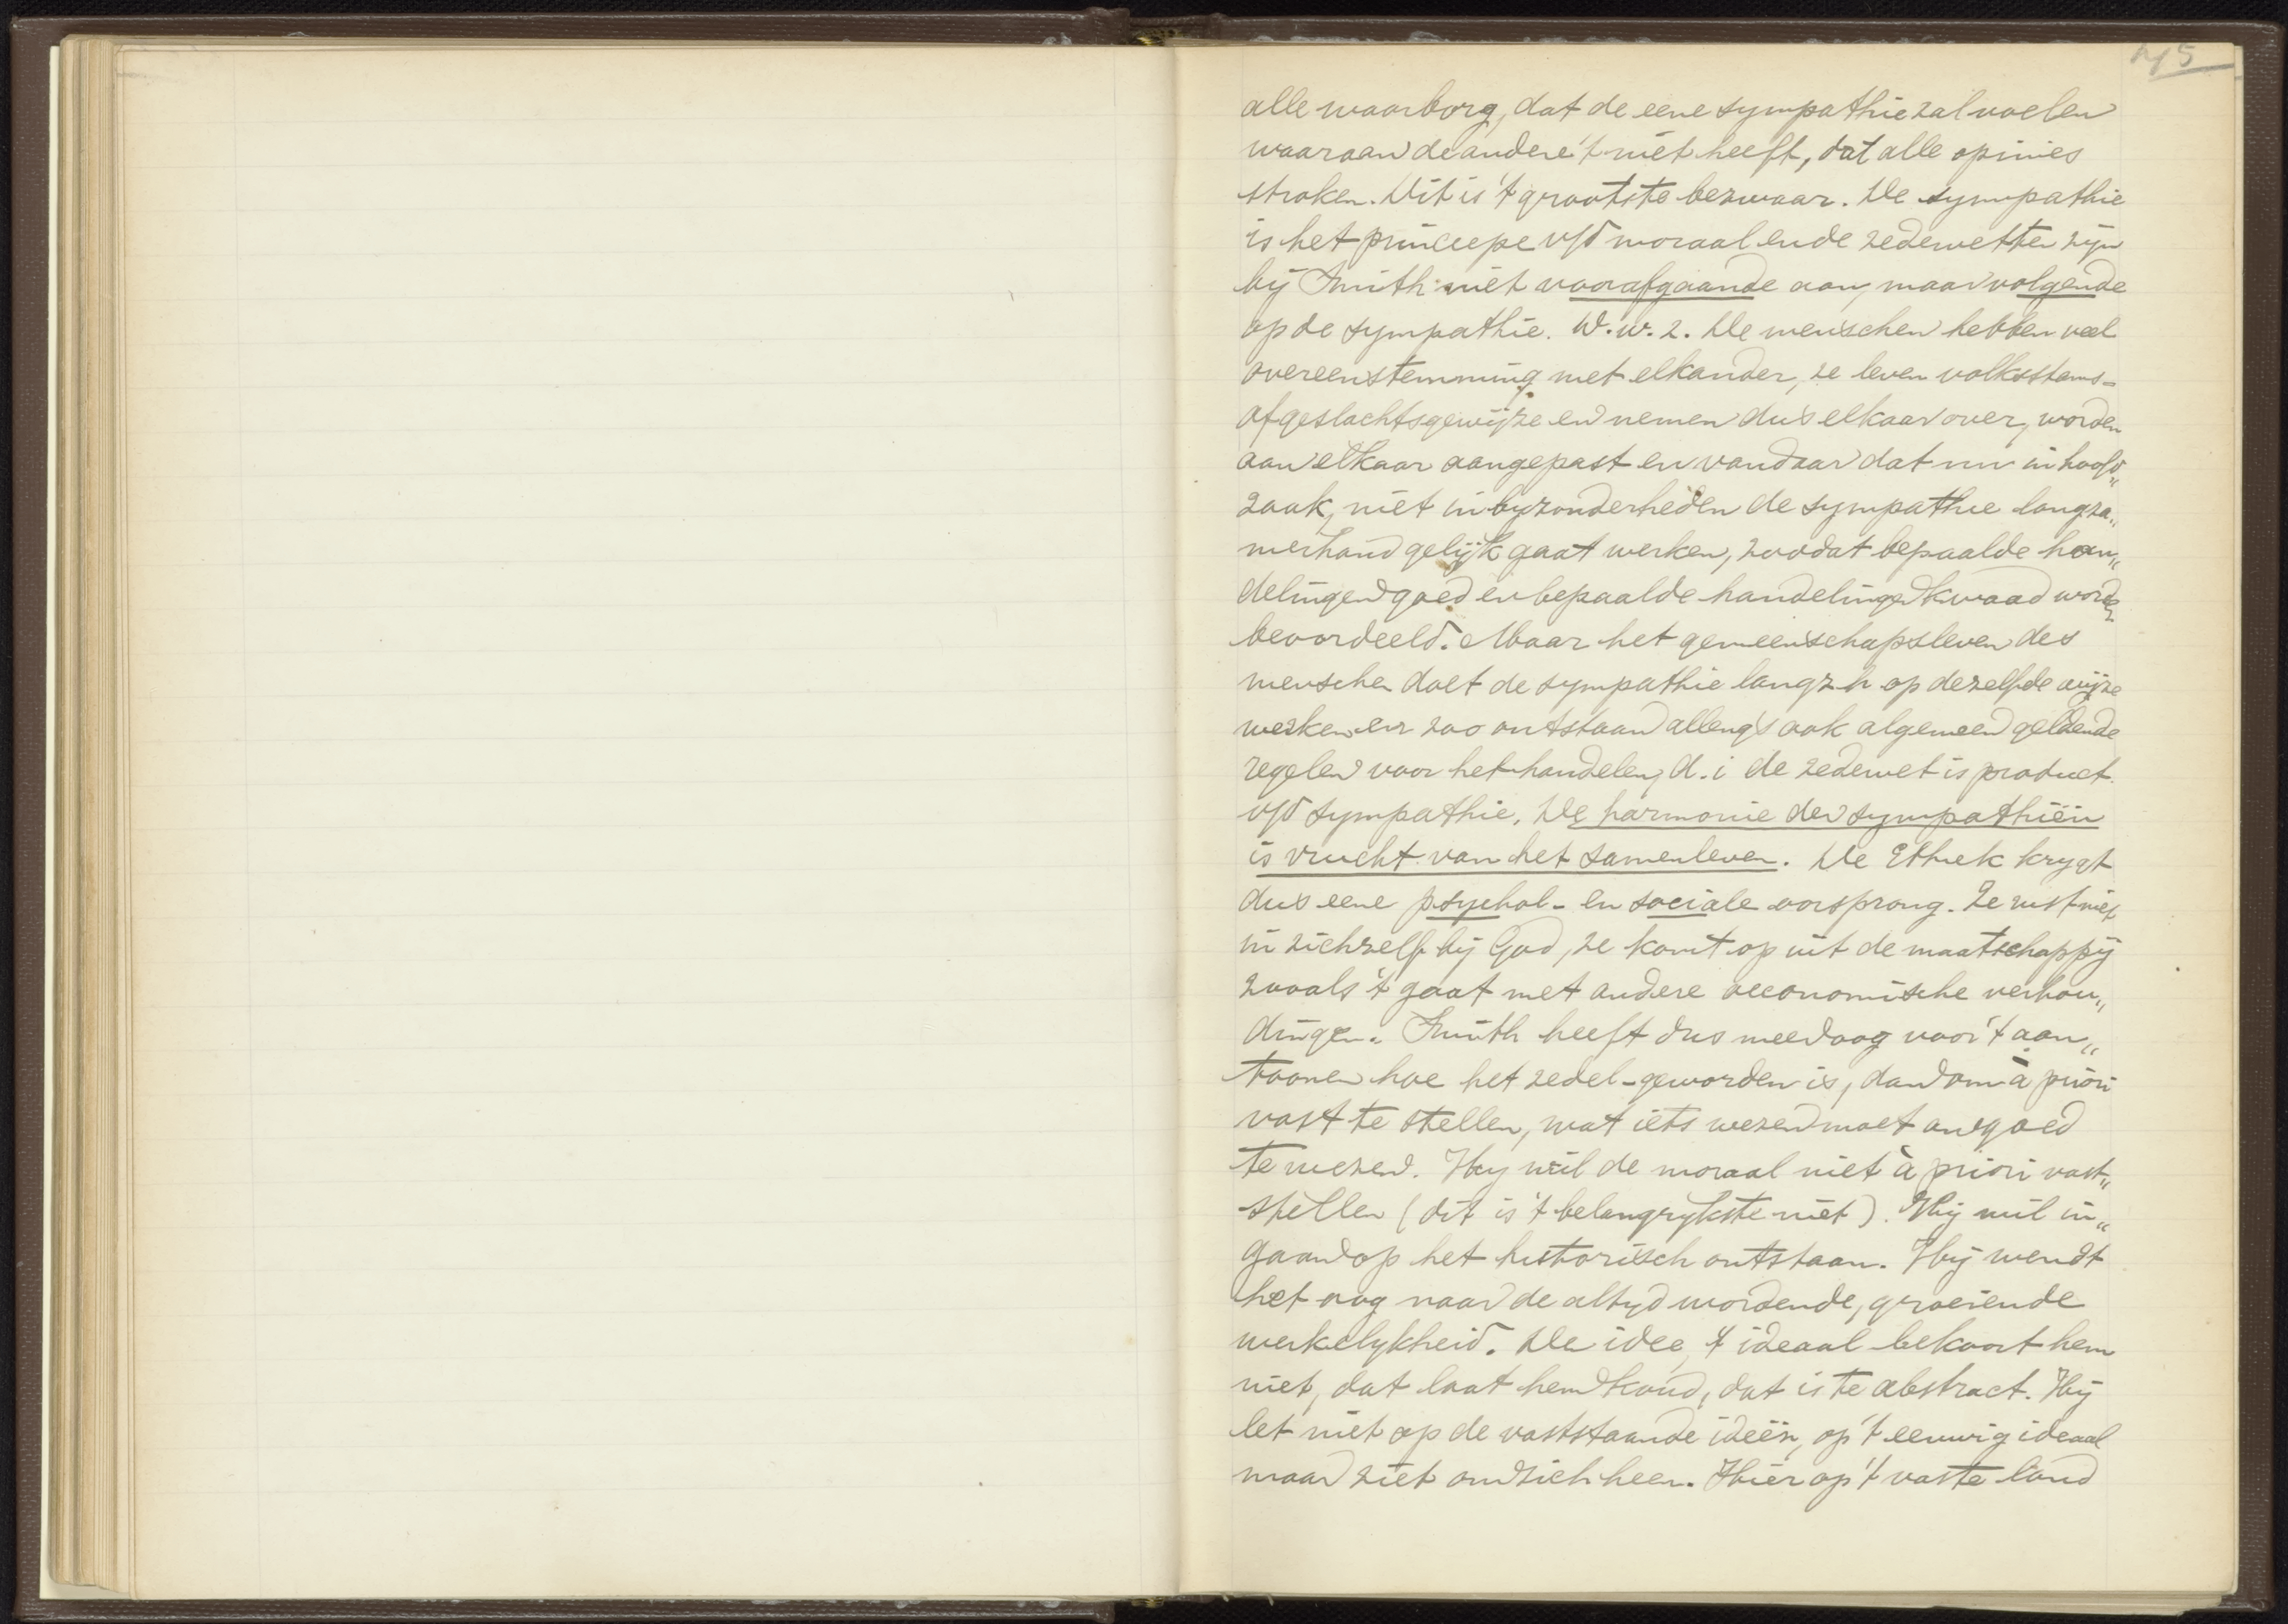 45
alle waarborg, dat de eene sympathie zal voelen
waaraan de andere 't niet heeft, dat alle opinies
stroken. Dit is 't grootste bezwaar. De sympathie
is het principe v/d moraal en de zedewetten zijn
bij Smith niet voorafgaande aan, maar volgende
op de sympathie. D.w.z. De menschen hebben veel
overeenstemming met elkander, ze leven volksstams-
of geslachtsgewijze en nemen dus elkaar over, worden
aan elkaar aangepast en vandaar dat nu in hoofd„
zaak, niet in byzonderheden de sympathie langza„
merhand gelijk gaat werken, zoodat bepaalde han„
delingen goed en bepaalde handelingen kwaad worden
beoordeeld. Maar het gemeenschapsleven des
menschen doet de sympathie langzh op dezelfde wijze
werken en zoo ontstaan allengs ook algemeen geldende
regelen voor het handelen, d.i de zedewet is product
v/d sympathie. De harmonie der sympathiën
is vrucht van het samenleven. De Ethiek krygt
dus eene psychol- en sociale oorsprong. Ze rust niet
in zichzelf bij God, ze komt op uit de maatschappij
zooals 't gaat met andere oeconomische verhou„
dingen. Smith heeft dus meer oog voor 't aan„
toonen hoe het zedel- geworden is, dan om à priori
vast te stellen, wat iets wezen moet om goed
te wezen. Hy wil de moraal niet à priori vast„
stellen (dit is 't belangrykste niet). Hij wil in„
gaan op het historisch ontstaan. Hij wendt
het oog naar de altyd wordende, groeiende
werkelykheid. De idee, 't ideaal bekoort hem
niet, dat laat hem koud, dat is te abstract. Hij
let niet op de vaststaande ideën, op 't eeuwig ideaal
maar ziet om zich heen. Hier op 't vaste land